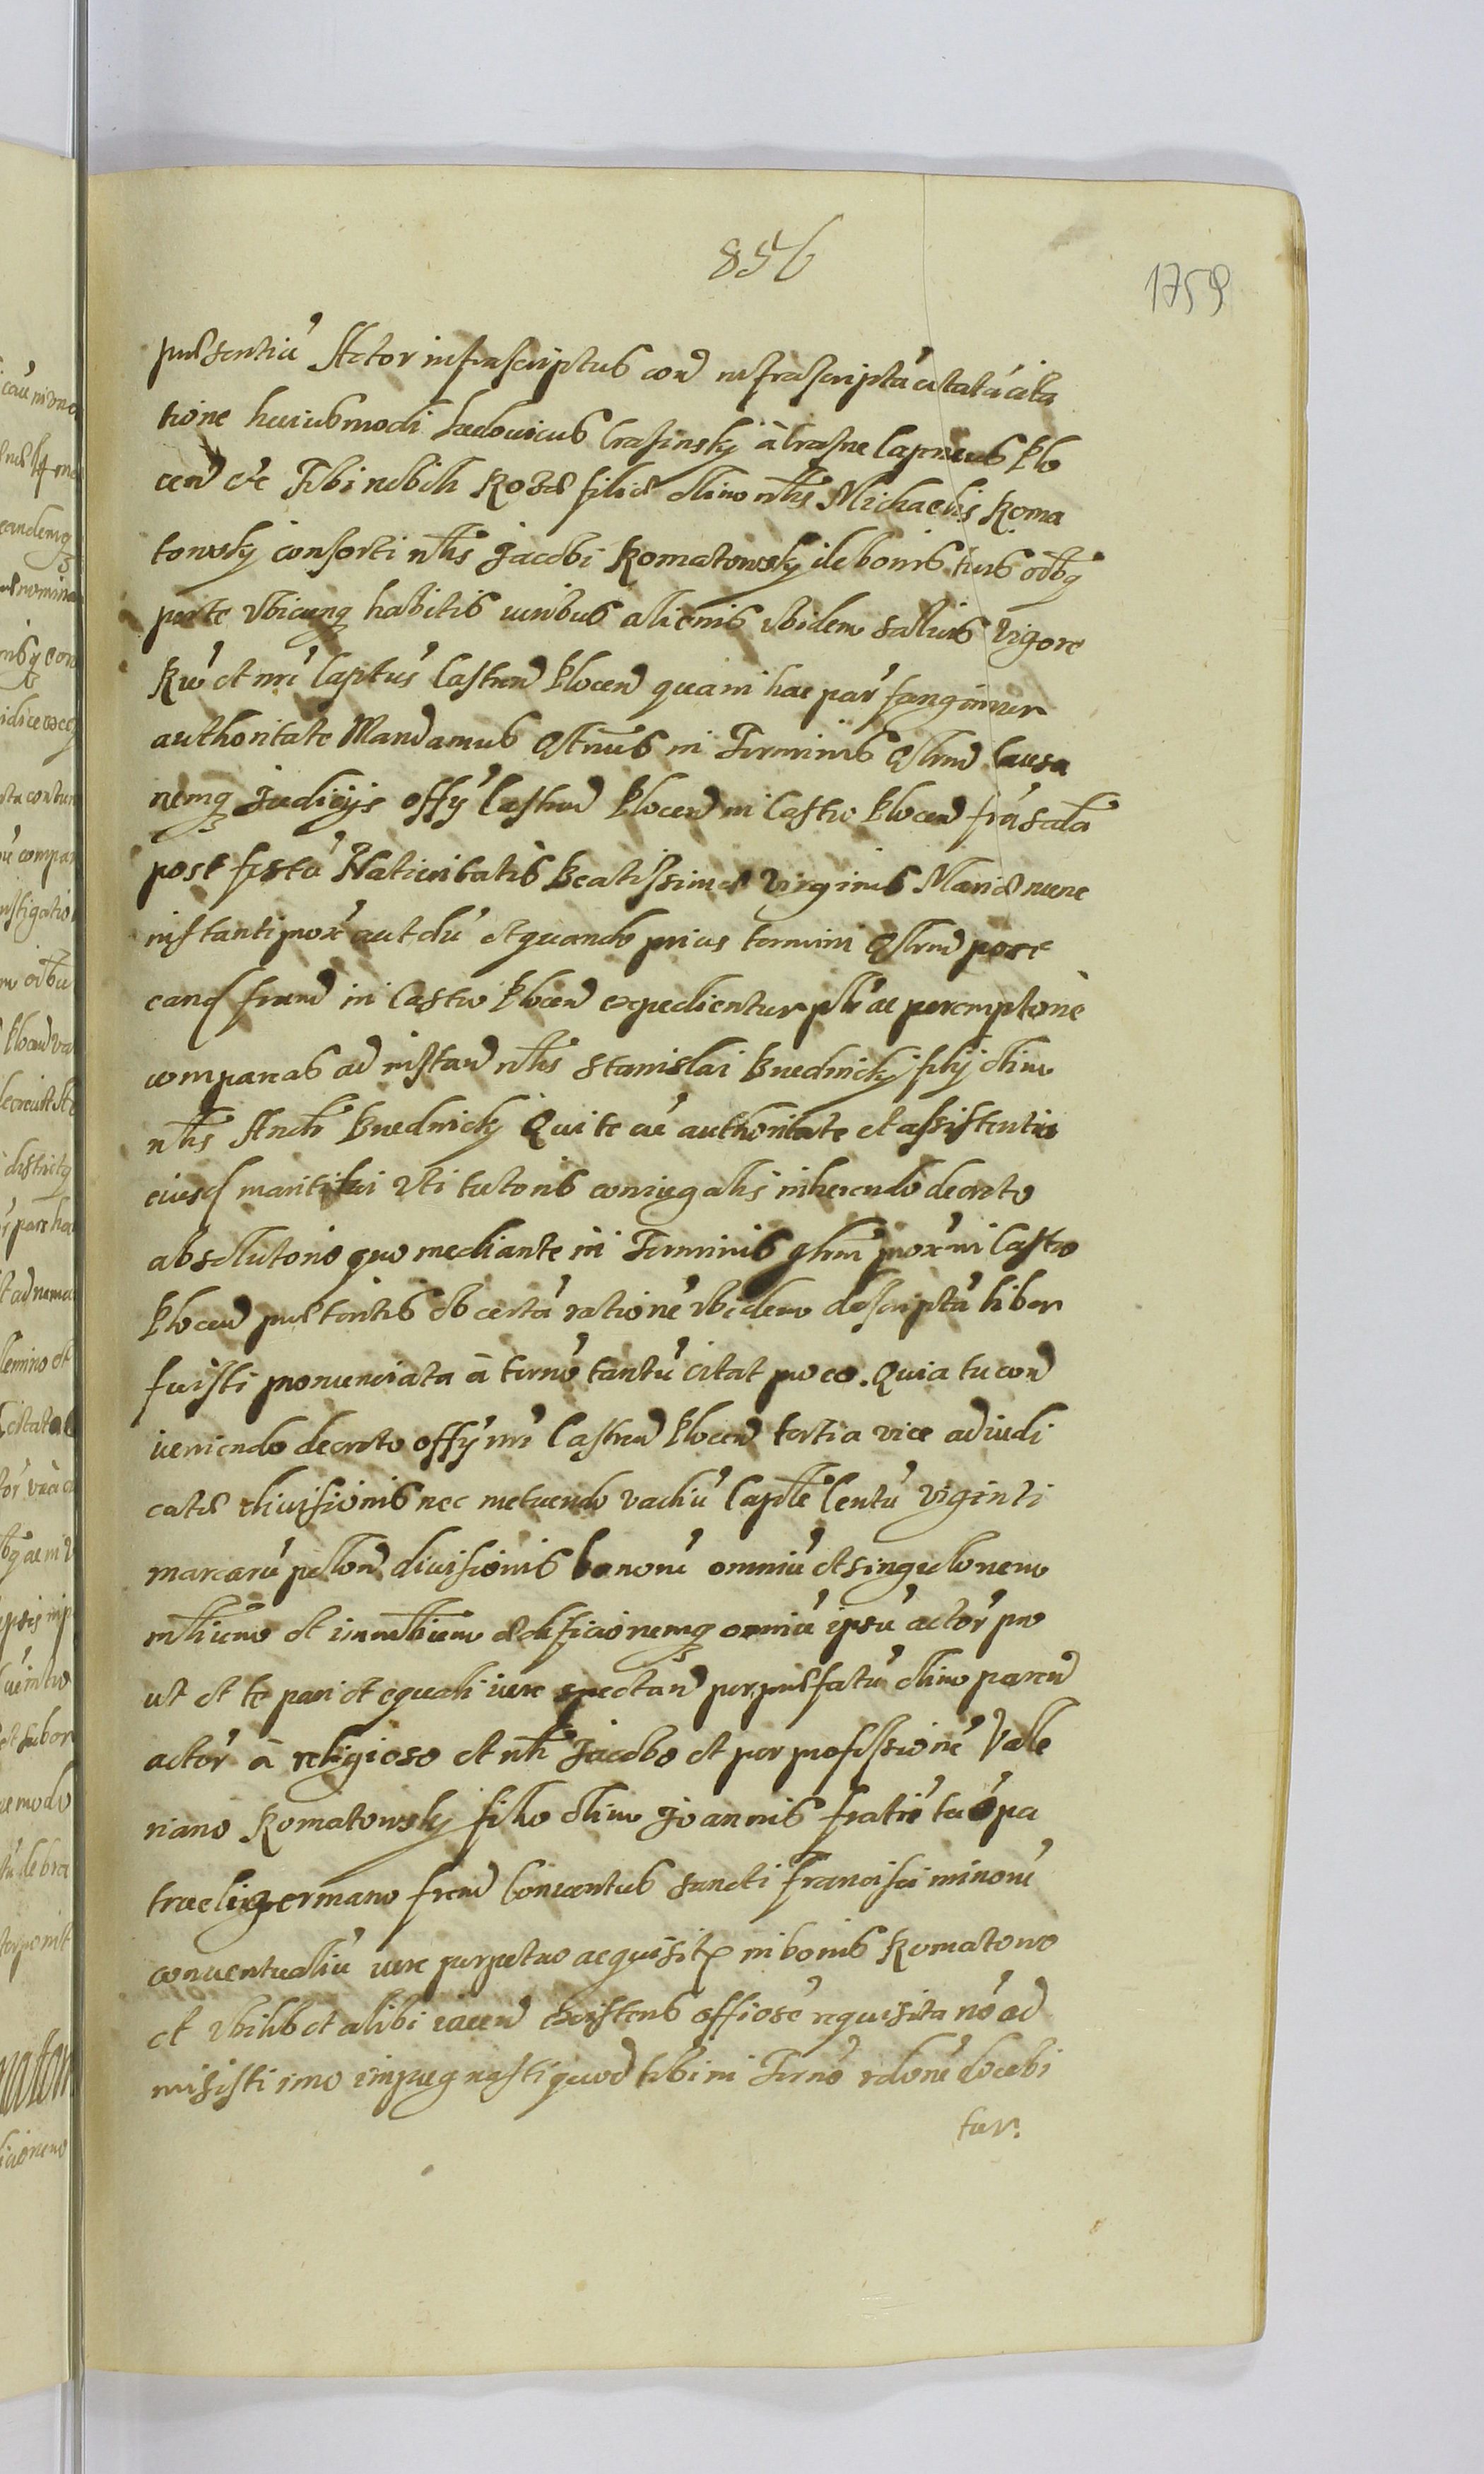 856
1759
pntsentiũ Actor infrascriptus con͠ infrascriptã citatã cita
tione huiusmodi Ludouicus Crasinsky à Crasne Capneus Plo
cen͠ etc Tibi nobili Rosæ filiæ olim nlis Michaelis Koma
towsky consorti nlis Jacobi Komatowsky de bonis tuis oibq
per te vbicunq habitis iuribus alienis ibidem saluis vigore
Rw et nri Captus Castren͠ Plocen͠ qua in hac par fungimur
authoritate Mandamus Qtnus in Terminis Qlrium Causa
rumq Judicijs offy Castren͠ Plocen͠ in Castro Plocen͠ fria scda
post festũ Natiuitatis Beatissimæ Virginis Mariæ nunc
instanti prox aut dũ et quando prius termini Qlrium post
eand feriam in Castro Plocen͠ expedientur plr ac peremptorie
compareas ad instan͠ nlis Stanislai Brudnicky filij olim
nlis Andr Brudnicky Qui te cũ authoritate et assistentia
eiusd mariti tui vti tutoris coniugalis inherendo decreto
absolutorio quo mediante in Terminis qlrium prox in Castro
Plocen͠ præteritis ob certã rationẽ ibidem descriptã liber
fuisti pronunciata à termo tantũ citat pro eo. Quia tu con͠
ueniendo decreto offy nri Castren͠ Plocen͠ tertia vice adiudi
catæ diuisionis nec metuendo vadiũ Caple Centũ viginti
marcarũ pollon͠ diuisionis bonorũ omniũ et singulorum
mbilium et immbilium ædificiorumq omniũ ipsũ actor pro
ut et te pari et equali iure spectan͠ per præfatũ olim paren͠
actor à religioso et nli Jacobo et per professionẽ Vale
riano Komatowsky filio olim Joannis fratrẽ tuo pa
trueli germano frem Conuentus Sancti Francisci minorũ
conuentualiũ iure perpetuo acquisit in bonis Komatowo
et vbilibt alibi iacen͠ existens offiose requisita nõ ad
misisti imo impugnasti quod tibi in Termo rdone docebi
tur.